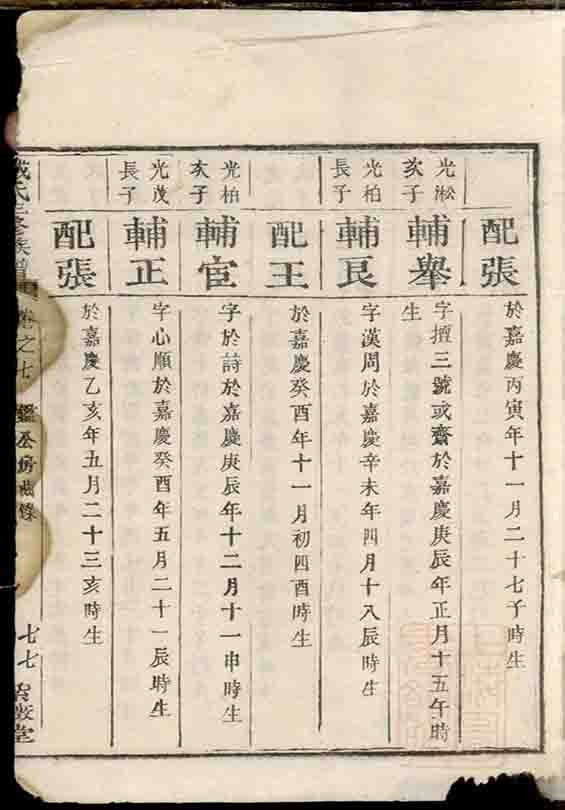 配張
於嘉慶丙寅年十一月二十七子時生
光淞
次子
輔舉
字擅三號或齋於嘉慶庚辰年正月十五午時
生
光柏
長子
輔良
字漢周於嘉慶辛未年四月十八辰時生
配王
於嘉慶癸酉年十一月初四酉時生
光柏
次子
輔宦
字於詩於嘉慶庚辰年十二月十一申時生
光茂
長子
輔正
字心順於嘉慶癸酉年五月二十一辰時生
配張
於嘉慶乙亥年五月二十三亥時生
氏三修族譜
卷之七
公房齒錄
七七
堂